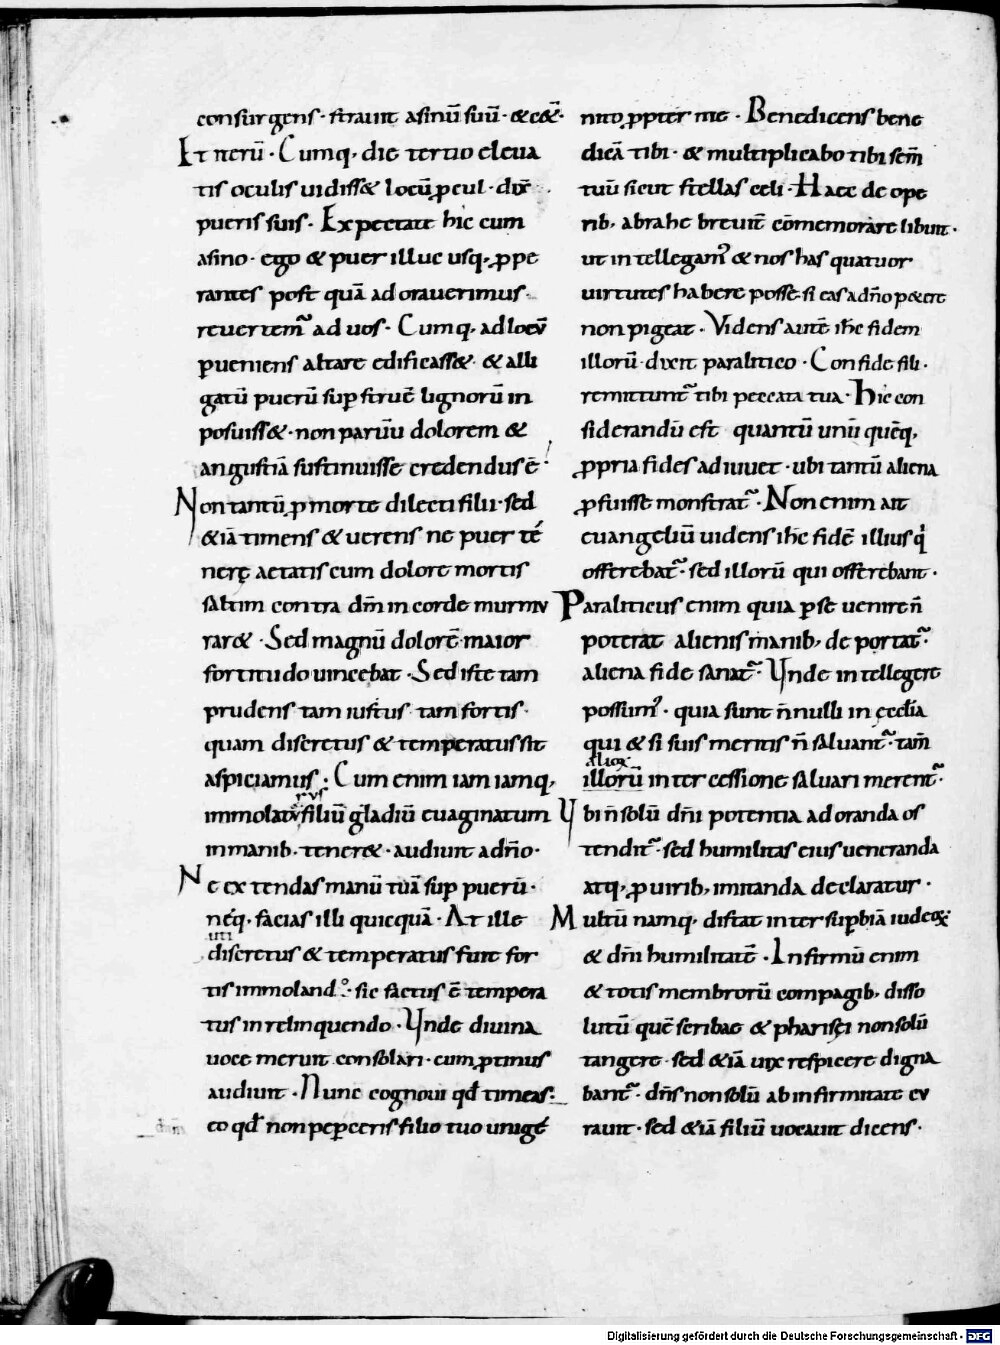 consurgens · strauit asinū suū · &c&̄ ·
Et iterū · Cumq; die tertio eleua
tis oculis uidiss& locū ꝓcul · dix̄ ·
pueris suis · Expectate hic cum
asino · ego & puer illuc usq; ꝓpe
rantes post quā adorauerimus ·
reuertem̄ ad uos · Cumq; ad locū
ꝑueniens altare edificass& · & alli
gatū puerū sup̄ struē lignorū in
posuiss& · non paruū dolorem &
angustiā sustinuisse credendus ē ·
Non tantū ꝓ morte dilecti filii · sed
&iā timens & uerens ne puer té
nerę aetatis cum dolore mortis
saltim contra dm̄ in corde murmu
rar& · Sed magnū dolorē maior
fortitudo uincebat · Sed iste tam
prudens tam iustus tam fortis ·
quam discretus & temperatus sit
aspiciamus · Cum enim iam iamq;
rus
immolatū filiū gladiū euaginatum
in manib · tener& · audiuit a dño ·
Ne extendas manū tuā sup̄ puerū ·
néq; facias illi quicquā · At ille
uti
discretus & temperatus fuit for
tis immoland° · sic factus ē tempera
tus in relinquendo · Unde diuina
uoce meruit consolari · cum ꝓtinus
audiuit · Nunc cognoui qđ timeas
eo qđ non peꝑceris filio tuo unigé
nito ꝓpter me · Benedicens bene
dicā tibi · & multiplicabo tibi sem̄
tuū sicut stellas celi · Haec de ope
rib; abrahe breuit̄ cōmemorare libuit ·
ut intellegam̄ & nos has quatuor
uirtutes habere posse · si eas a dño p&ere
non pigeat · Videns autē ih̄c fidem
illorū · dixit paralitico · Confide fili ·
remittunt̄ tibi peccata tua · Hic con
siderandū est quantū unū quēq;
ꝓpria fides adiuuet · ubi tantū aliena
ꝓfuisse monstrat̄ · Non enim ait
euangeliū uidens ih̄c fidē illius qi
offerebat̄ · sed illorū qui offerebant ·
Paraliticus enim quia ꝑ se uenire n̄
poterat alienis manib; deportat̄ ·
aliena fide sanat̄ · Unde intellegere
possum̄ · quia sunt n̄nulli in ęccl̄ia
qui & si suis meritis n̄ saluant̄ · tam̄
alioꝝ
illorū intercessione saluari merent̄ ·
Ubi n̄ solū dn̄i potentia adoranda os
tendit̄ · sed humilitas eius ueneranda
atq; ꝓ uirib; imitanda declaratur ·
Multū namq; distat inter sup̄biā iudeoꝝ
& dn̄i humilitatē · Infirmū enim
& totis membrorū compagib; disso
lutū quē scribae & pharisęi non solū
tangere · sed &iā uix respicere digna
bant̄ · dn̄s non solū ab infirmitate cu
rauit · sed &iā filiū uocauit dicens ·
Digitalisierung gefördert durch die Deutsche Forschungsgemeinschaft - DFG